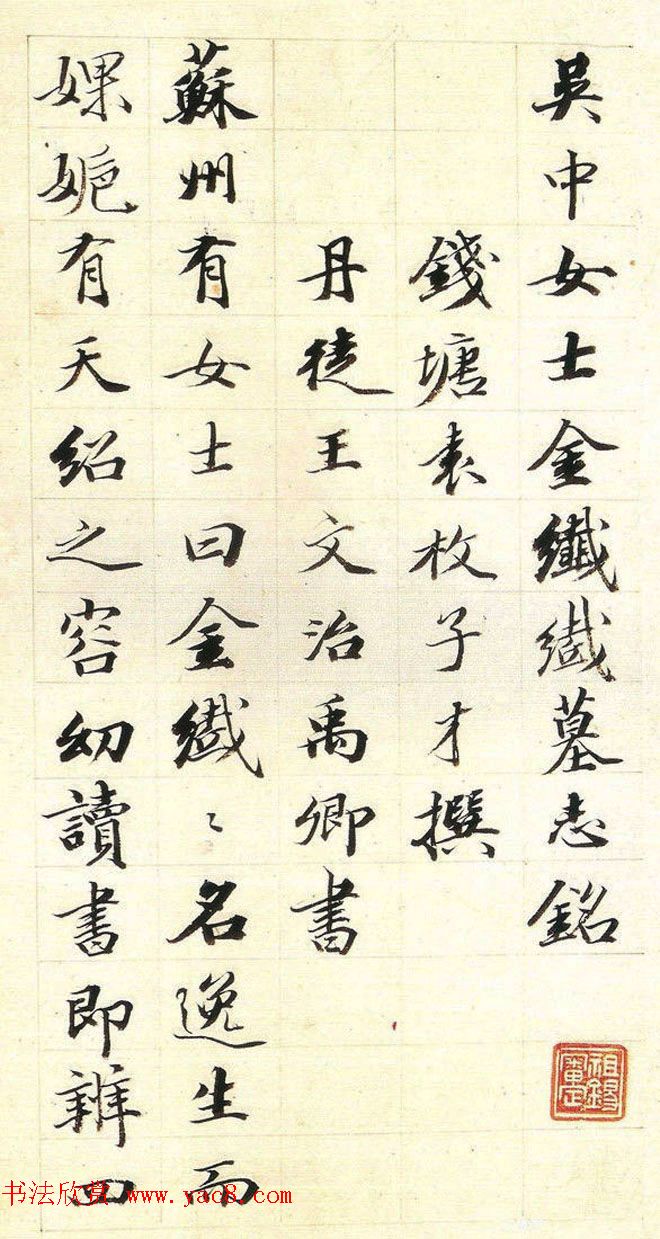 吳中女士金纖纖墓志銘
錢塘袁枚子才撰
丹徒王文治禹卿書
蘇州有女士曰金纖〻名逸生而
婐姽有夭紹之容幼讀書即辨四
祖錫審定
书法欣赏 www.yac8.com